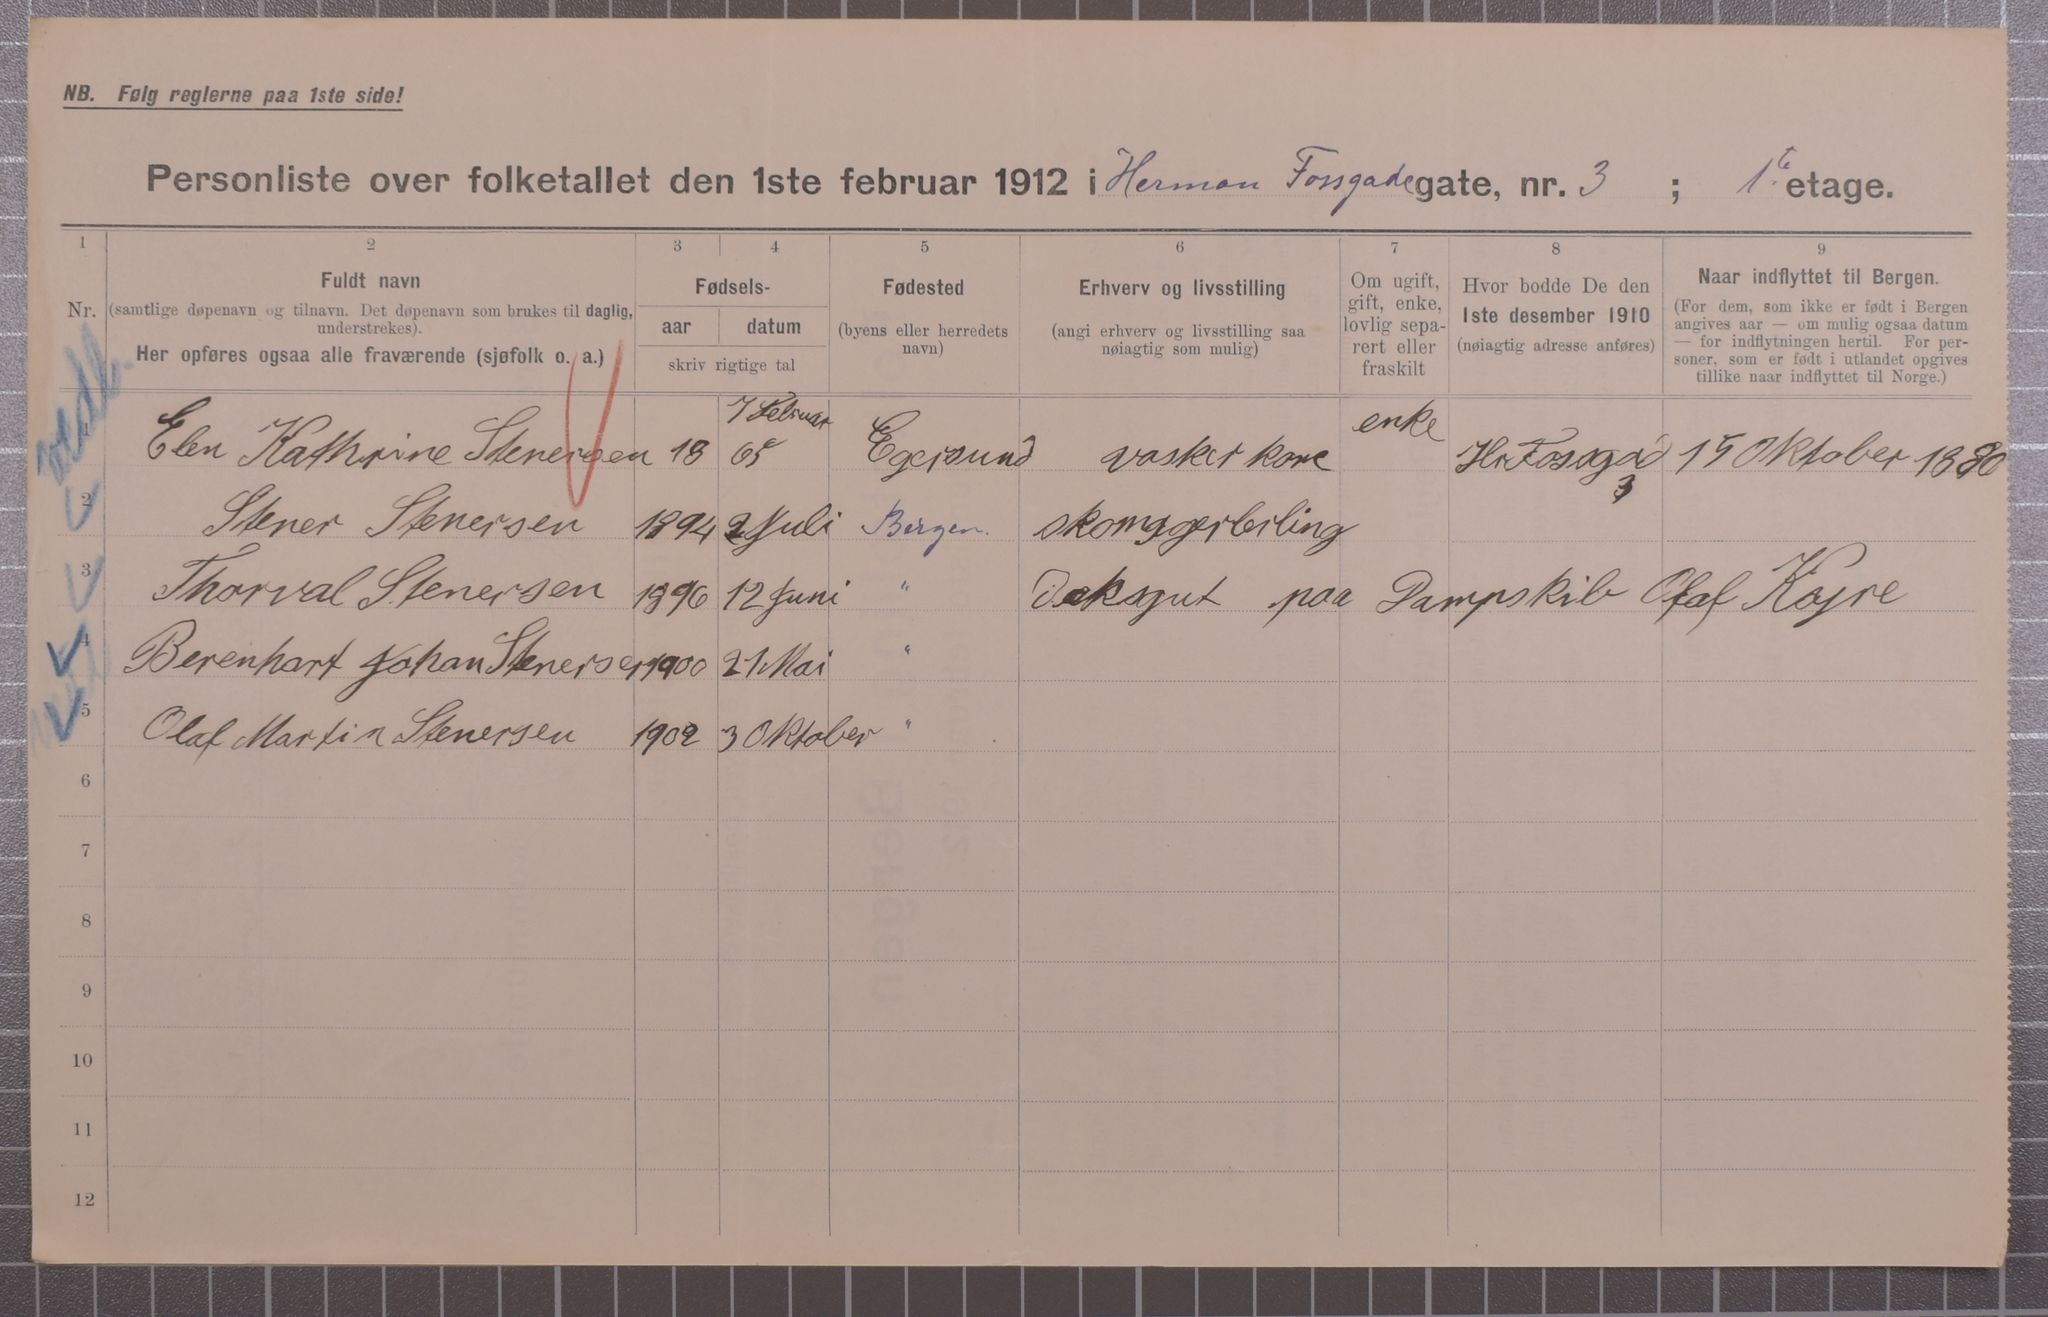 NB. Følg reglerne paa 1ste side!
Personliste over folketallet den 1ste februar 1912 i Herman Fossgade gate, nr. 3 ; 1te etage.
1 2 3 4 5 6 7 8 9
Nr.
Fuldt navn
(samtlige døpenavn og tilnavn. Det døpenavn som brukes til daglig, understrekes).
Her opføres ogsaa alle fraværende (sjøfolk o. a.)
Fødsels-
aar datum
skriv rigtige tal
Fødested
(byens eller herredets navn)
Erhverv og livsstilling
(angi erhverv og livsstilling saa nøiagtig som mulig)
Om ugift, gift, enke, lovlig separert eller fraskilt
Hvor bodde De den
1ste desember 1910
(nøiagtig adresse anføres)
Naar indflyttet til Bergen.
(For dem, som ikke er født i Bergen angives aar — om mulig ogsaa datum — for indflytningen hertil. For personer, som er født i utlandet opgives tillike naar indflyttet til Norge.)
1 Elen Kathrine Stenersen 18 65 7 Februar Egersund vasker kone enke Hr Fossgad 3 15 Oktober 1880
2 Stener Stenersen 1894 2 Juli Bergen. skomagerlerling
3 Thorval Stenersen 1896 12 Juni " Deksgut paa Dampskib Olaf Køjre
4 Berenhart Johan Stenersen 1900 21 Mai "
5 Olaf Martin Stenersen 1902 3 Oktober "
6
7
8
9
10
11
12